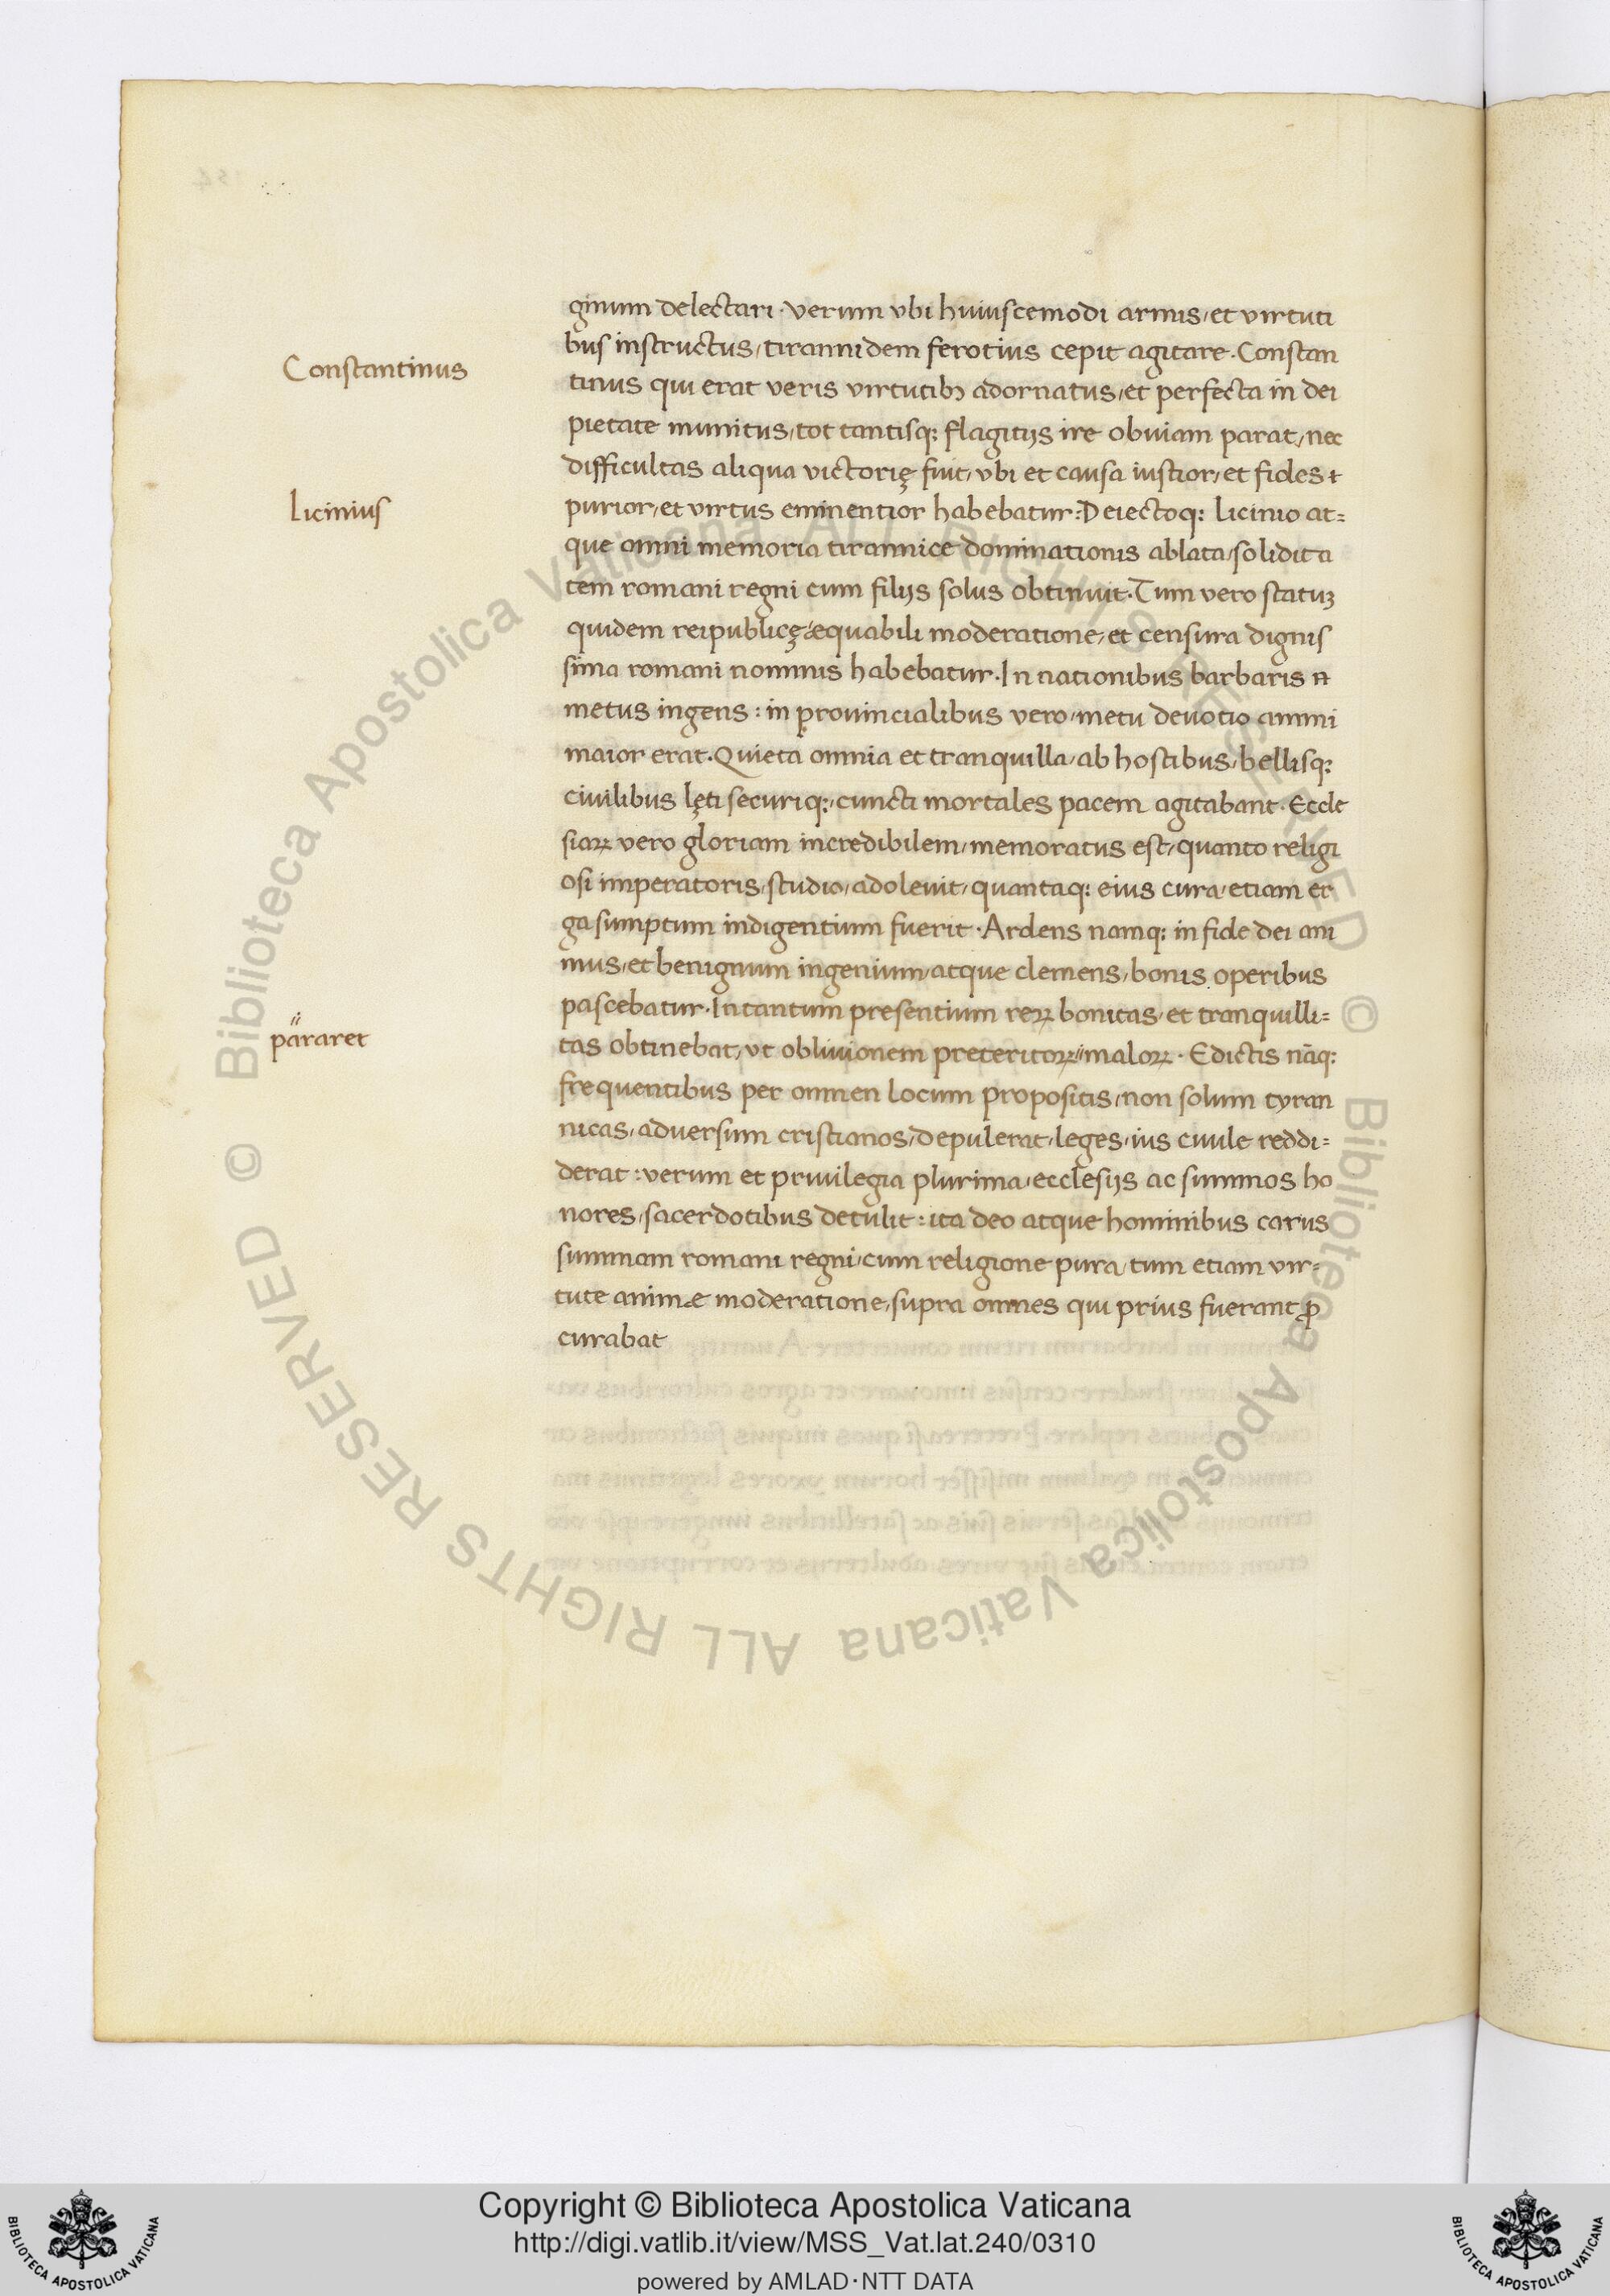 ginum delectari · verum vbi huiuscemodi armis, et virtuti
bus instructus, tirannidem ferotius cepit agitare · Constan
Constantinus
tinus qui erat veris virtutibꝫ adornatus, et perfecta in dei
pietate munitus, tot tantisqꝫ flagitijs ire obuiam parat, nec
difficultas aliqua victorię fuit, vbi et causa iustior, et fides
Licinius
purior, et virtus eminentior habebatur : Deiectoqꝫ licinio at=
que omni memoria tirannice dominationis ablata, solidita
tem romani regni cum filijs solus obtinuit · Tum vero statuꝫ
quidem reipublicę æquabili moderatione, et censura dignis
sima romani nominis habebatur · In nationibus barbaris
metus ingens : in prouincialibus vero, metu deuotio animi
maior erat · Quieta omnia et tranquilla, ab hostibus, bellisqꝫ
ciuilibus lęti securiqꝫ, cuncti mortales pacem agitabant · Eccle
siaꝝ vero gloriam incredibilem, memoratus est, quanto religi
osi imperatoris, studio, adoleuit, quantaqꝫ eius cura, etiam er
ga sumptum indigentium fuerit · Ardens namqꝫ in fide dei ani
mus, et benignum ingenium, atque clemens, bonis operibus
pascebatur · In tantum presentium reꝝ bonitas, et tranquilli=
pararet
tas obtinebat, vt obliuionem preteritoꝝ malоꝝ · Edictis nāqꝫ
frequentibus per omnen locum propositis, non solum tyran
nicas, aduersum cristianos, depulerat, leges, ius ciuile reddi=
derat : verum et priuilegia plurima, ecclesijs ac summos ho
nores, sacerdotibus detulit : ita deo atque hominibus carus
summam romani regni, cum religione pura, tum etiam vir=
tute anim e moderatione, supra omnes qui prius fuerant ꝓ
curabat
© Biblioteca Apostolica Vaticana ALL RIGHTS RESERVED
© Biblioteca Apostolica Vaticana ALL RIGHTS RESERVED
Copyright © Biblioteca Apostolica Vaticana
http://digi.vatlib.it/view/MSS_Vat.lat.240/0310
powered by AMLAD·NTT DATA
BIBLIOTECA APOSTOLICA VATICANA
BIBLIOTECA APOSTOLICA VATICANA